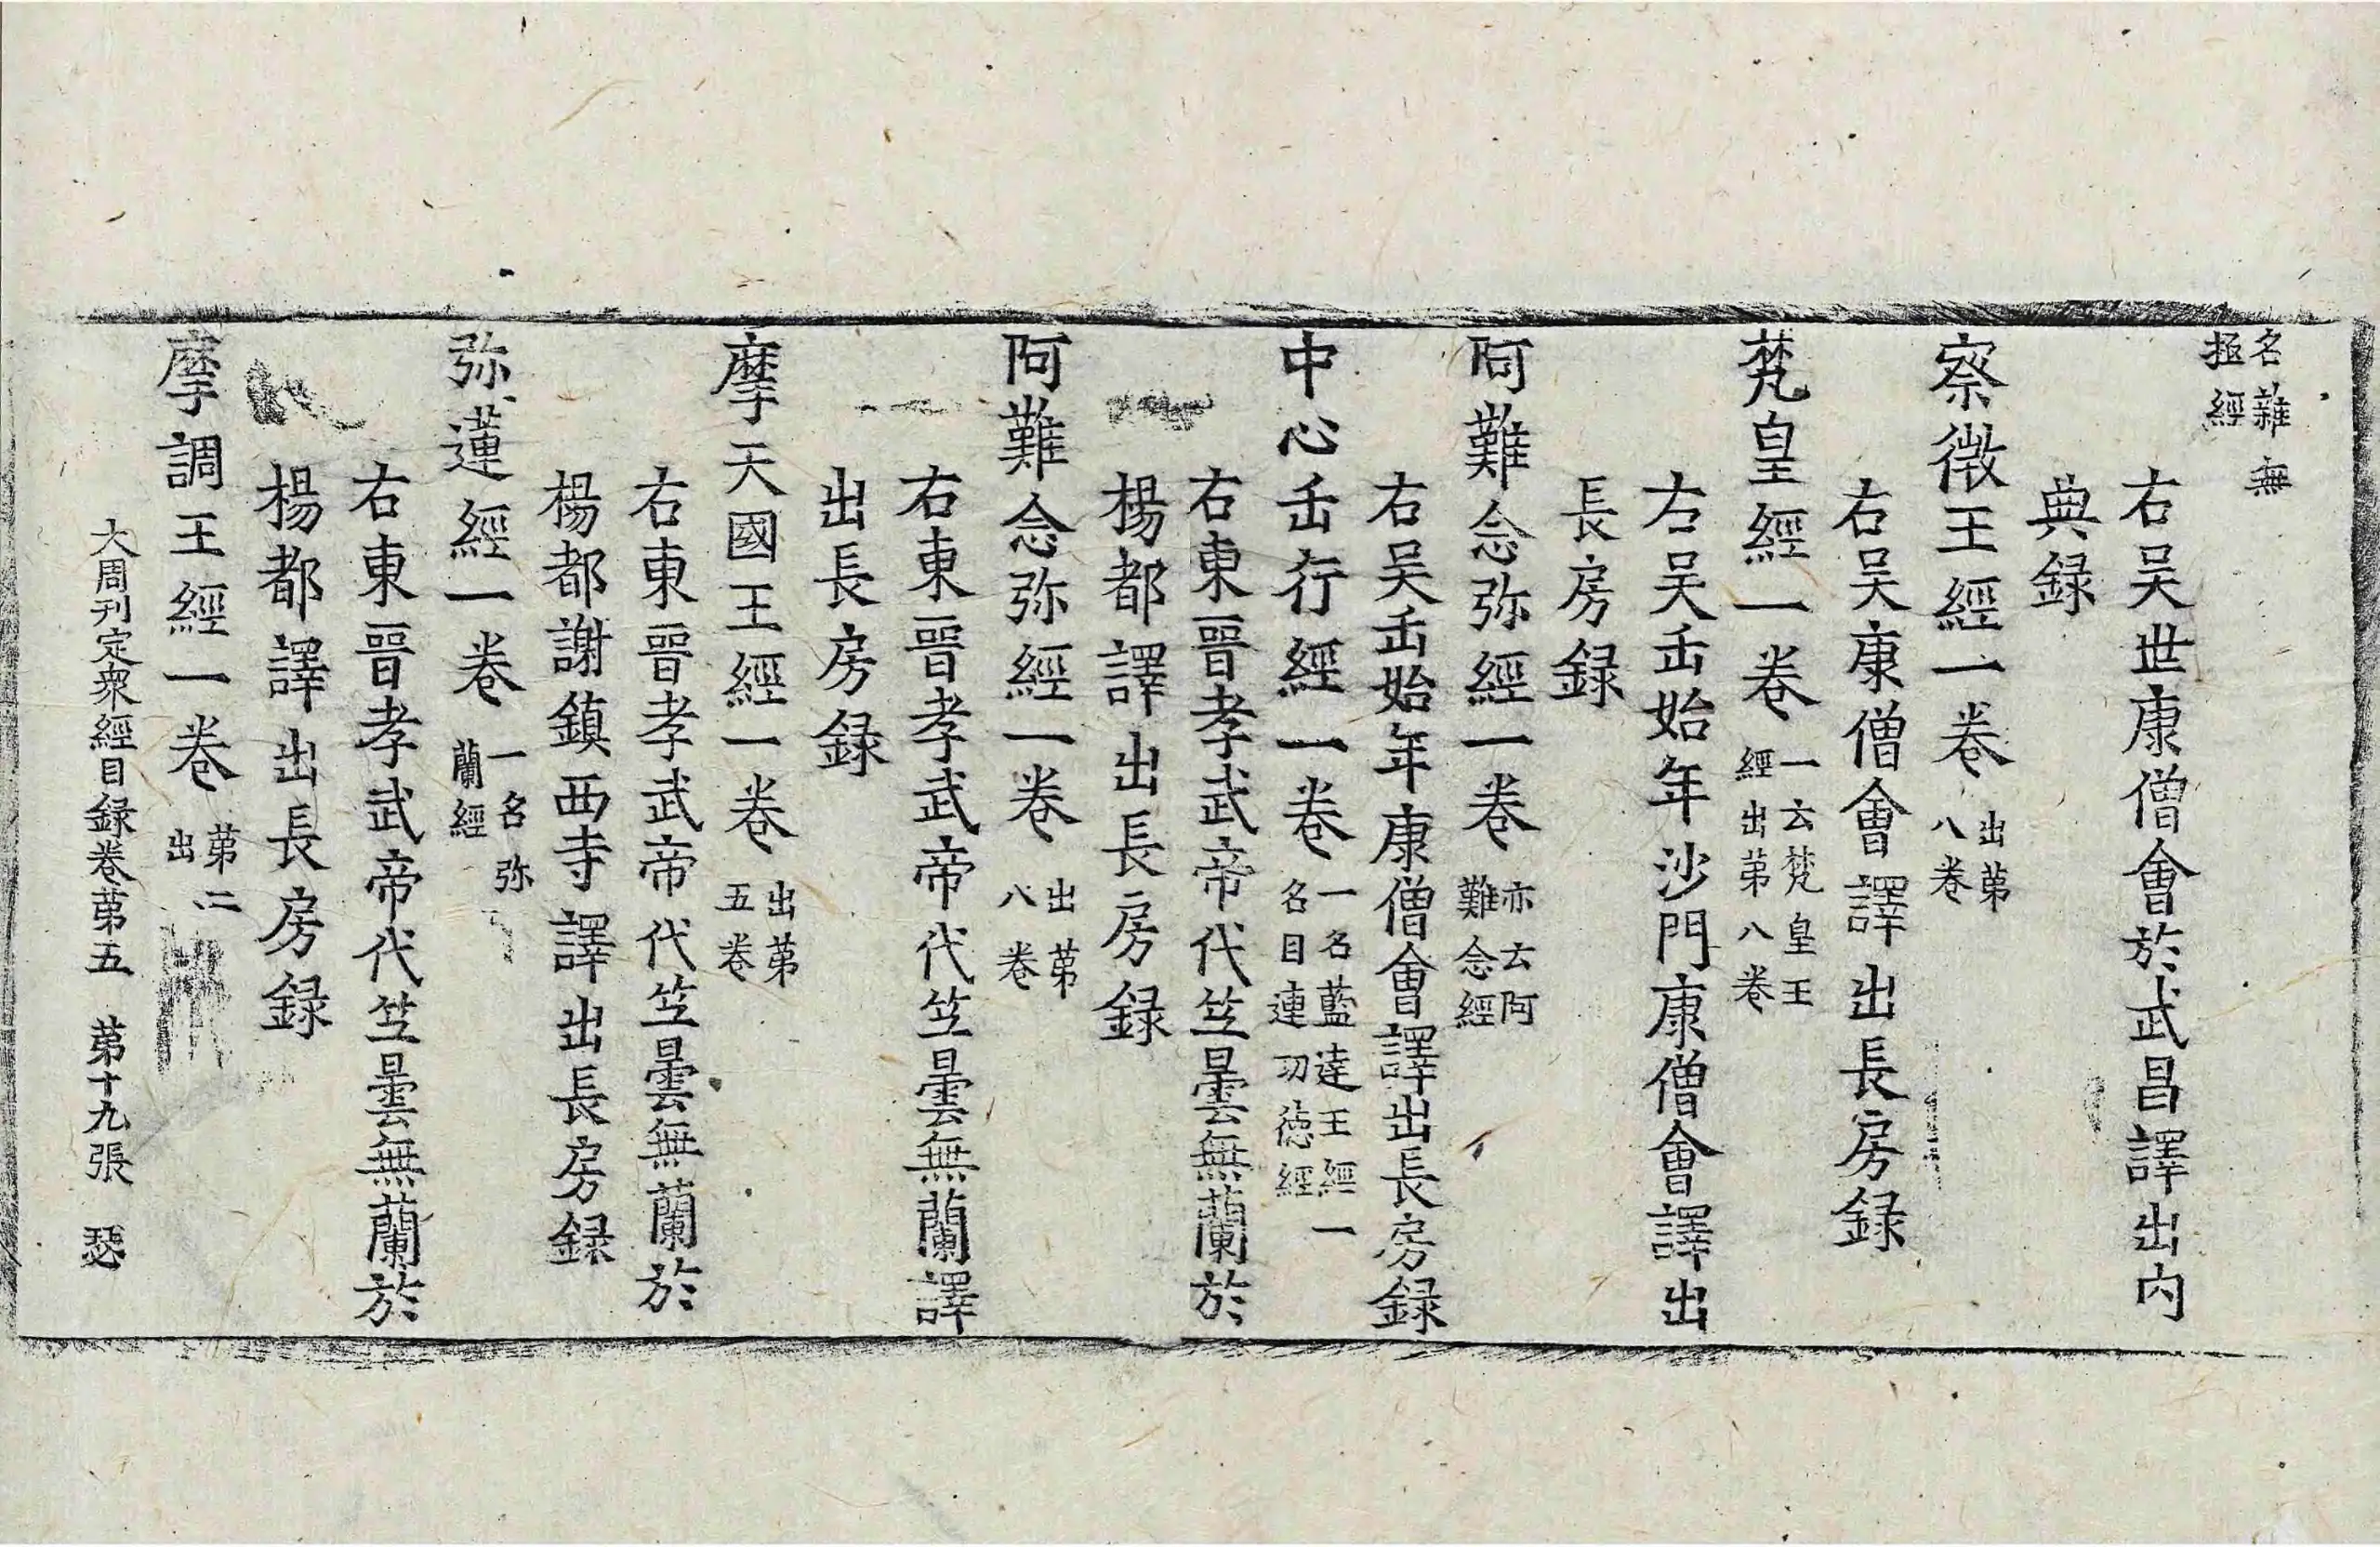 名雜無
極經
右吴世康僧會於武昌譯出内
典録
察微王經一卷 出苐
八卷
右吴康僧會譯出長房録
梵皇經一卷 一云梵皇王
經出苐八卷
右吴𠙺始年沙門康僧會譯出
長房録
阿難念弥經一卷 亦云阿
難念經
右吴𠙺始年康僧會譯出長房録
中心𠙺行經一卷 一名藍達王經一
名目連功徳經
右東晉孝武帝代竺曇無蘭於
楊都譯出長房録
阿難念弥經一卷 出苐
八卷
右東晉孝武帝代竺曇無蘭譯
出長房録
摩天國王經一卷 出苐
五卷
右東晉孝武帝代竺曇無蘭於
楊都謝鎮西寺譯出長房録
弥蓮經一卷 一名弥
蘭經
右東晉孝武帝代竺曇無蘭於
楊都譯出長房録
摩調王經一卷 苐二
出
大周刊定衆經目録卷苐五 苐十九張 瑟